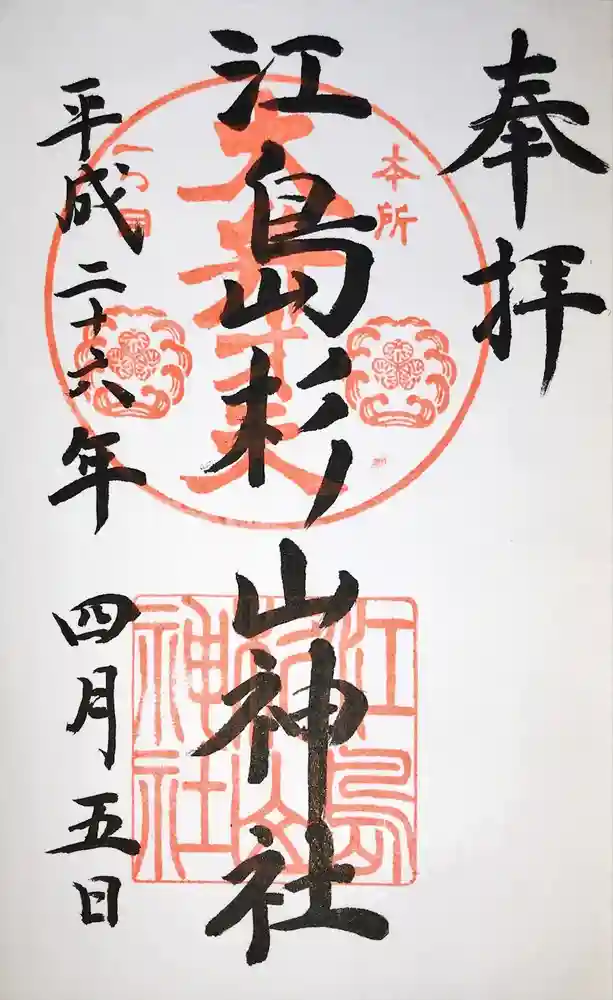 奉拝
本所
一つ目
江島杉山神社
江島杉山神社
平成二十六年四月五日